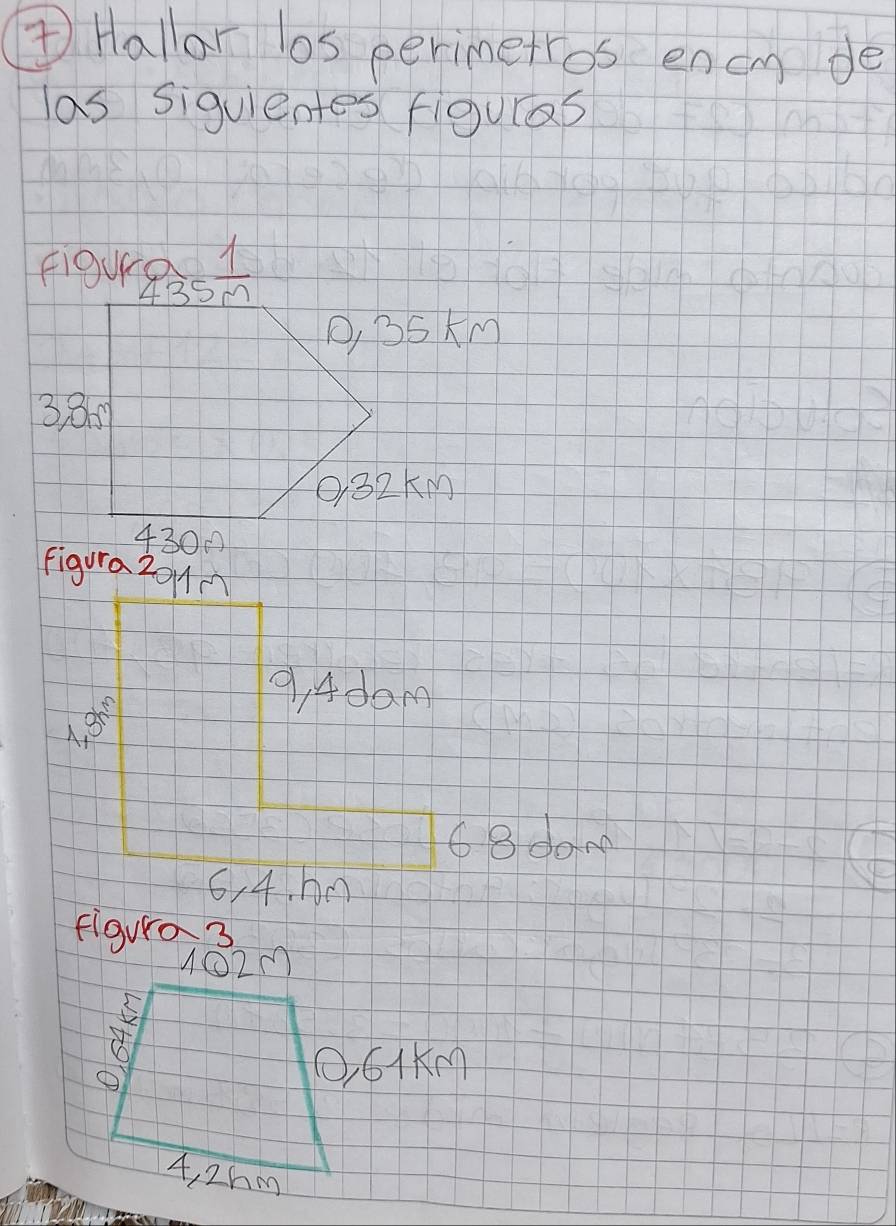 7 Hallar los perimetros en cm de
las siguientes figuras
Figura 1
435m
0,35 km
3,8hm
0,32km
430m
Figura 2
91m
9,4 dam
1,8hm
68 dam
6,4.hm
Figura 3
102m
0,64km
0,61km
4,2hm